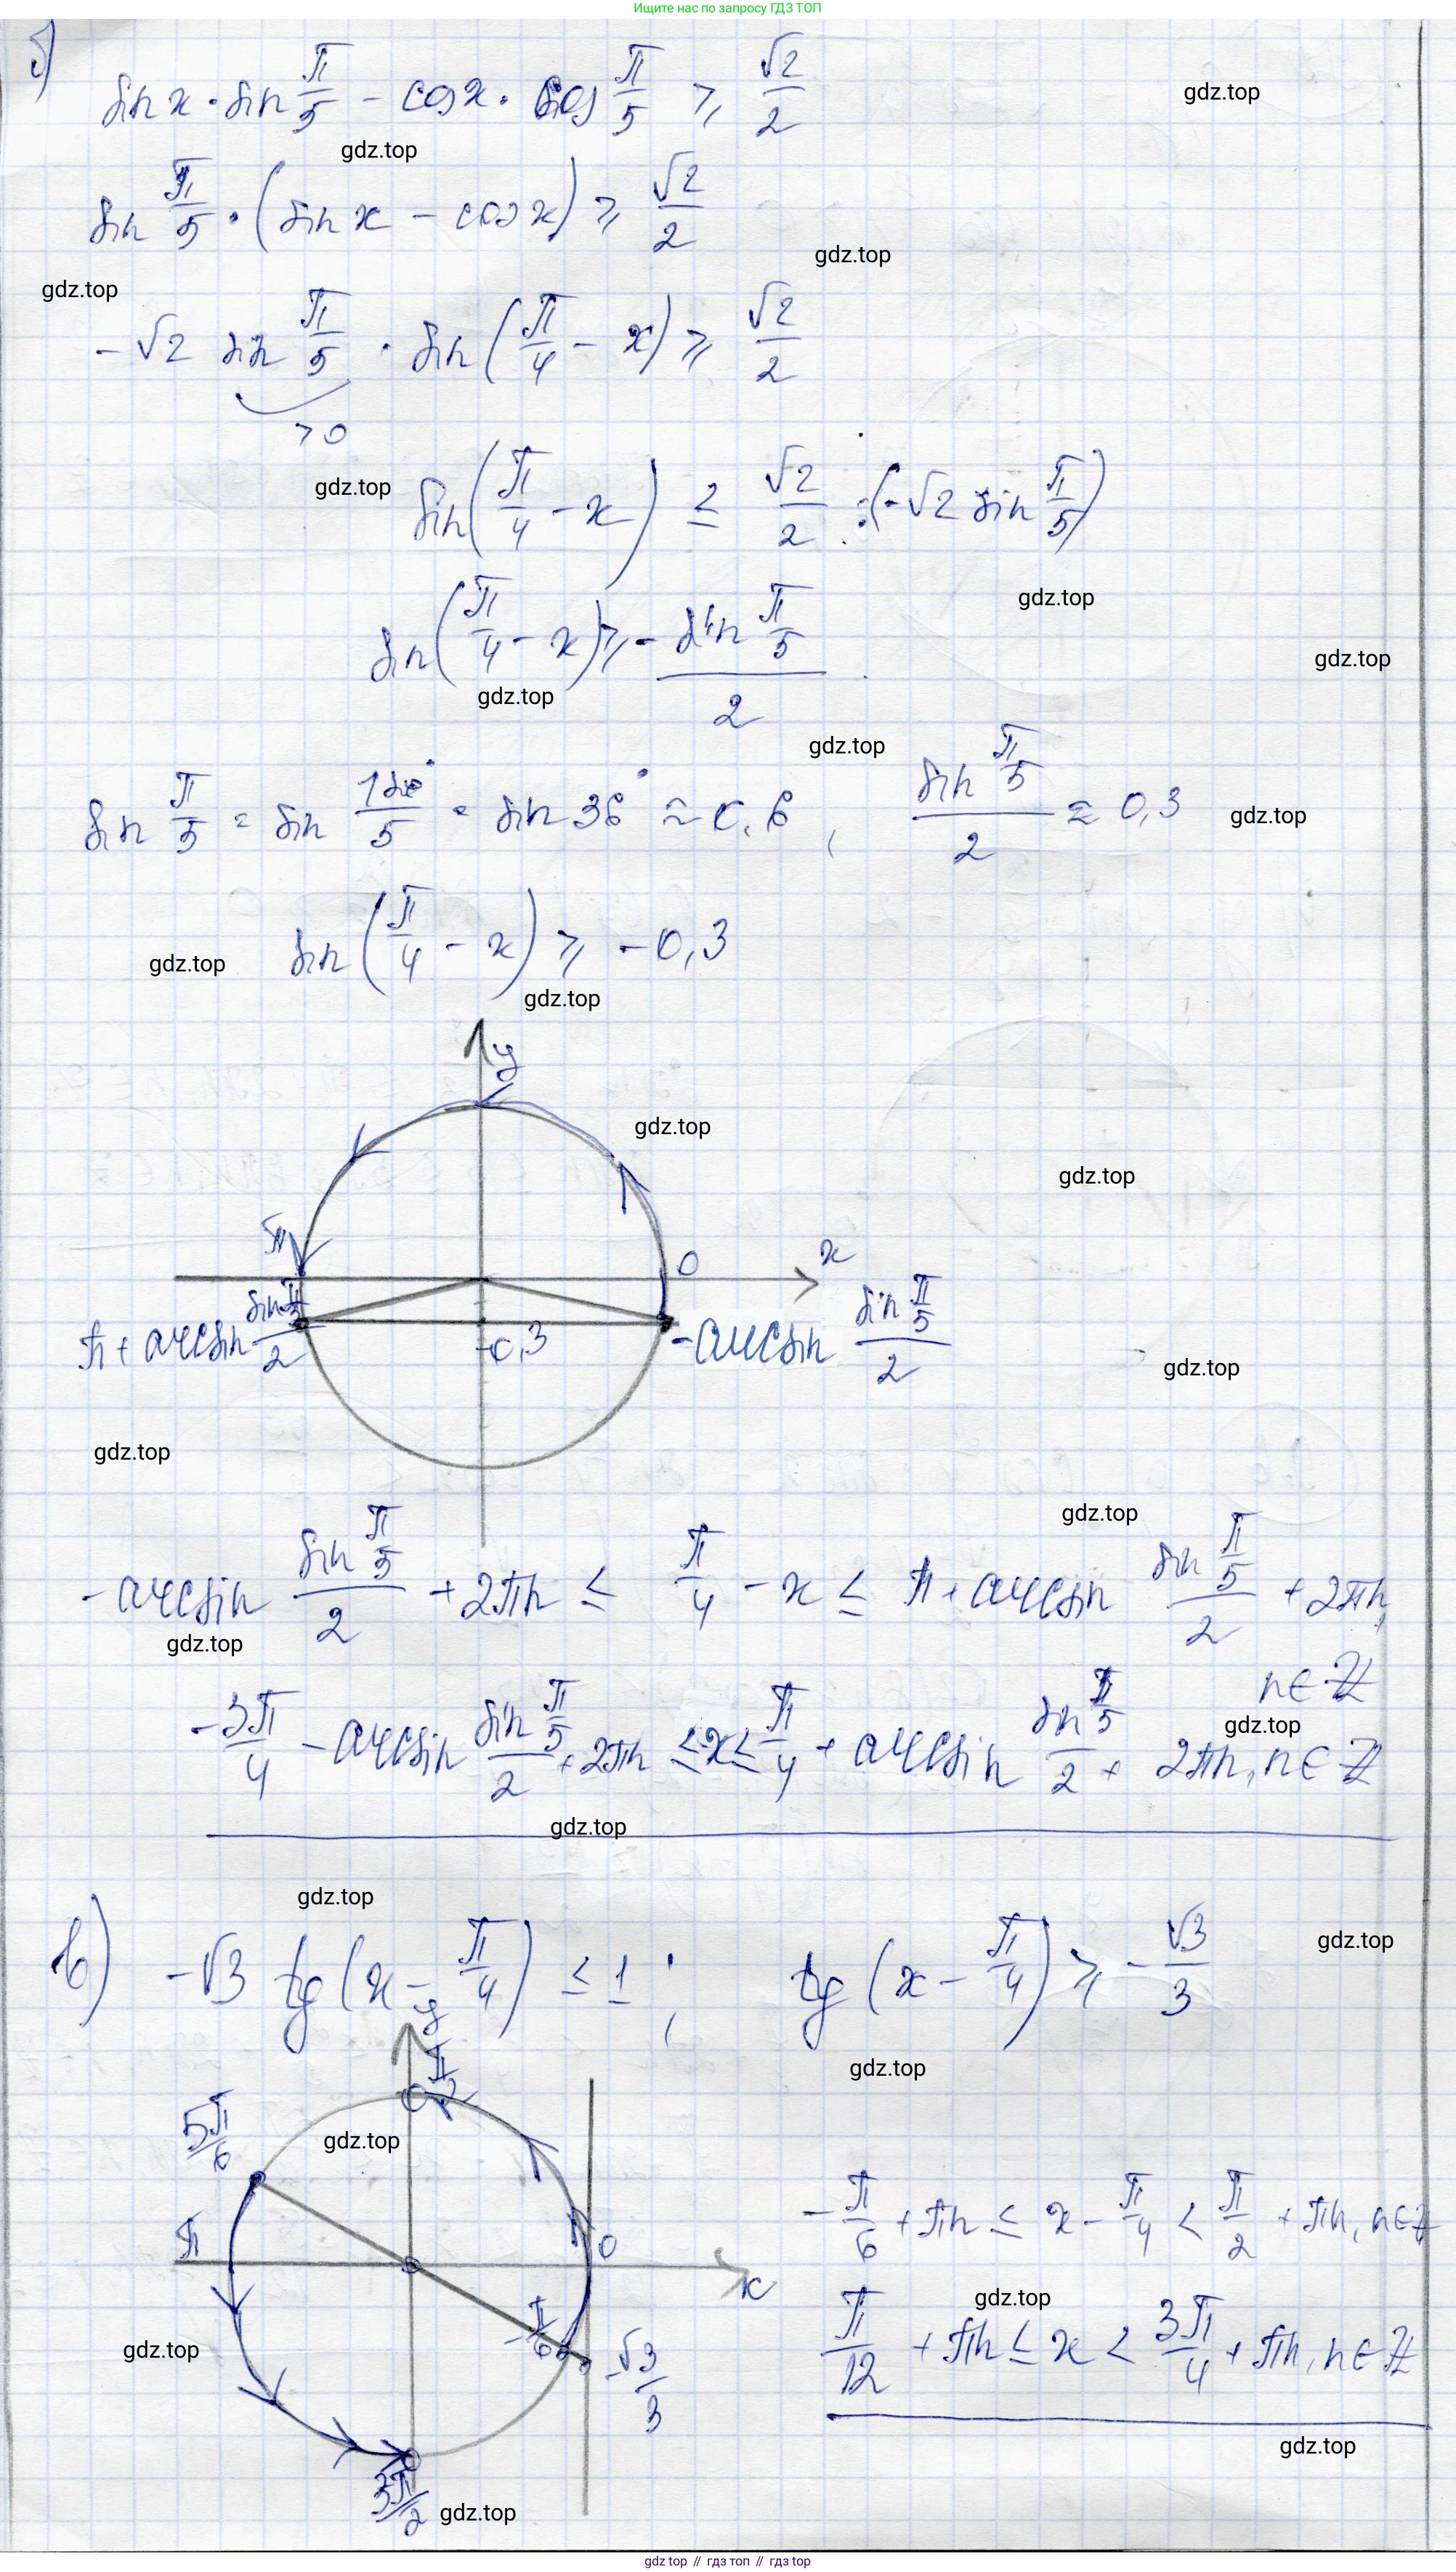 Ищите нас по запросу ГДЗ ТОП
б)
sin x · sin π/5 − cos x · cos π/5 ≥ √2/2
gdz.top
gdz.top
sin π/5 · (sin x − cos x) ≥ √2/2
gdz.top
gdz.top
−√2 sin π/5 · sin(π/4 − x) ≥ √2/2
> 0
gdz.top
sin(π/4 − x) ≤ √2/2 : (−√2 sin π/5)
gdz.top
sin(π/4 − x) ≥ − sin π/5 / 2
gdz.top
gdz.top
gdz.top
sin π/5 = sin 180°/5 = sin 36° ≈ 0,6, sin π/5 / 2 ≈ 0,3
gdz.top
sin(π/4 − x) ≥ −0,3
gdz.top
gdz.top
y
gdz.top
gdz.top
π
0
x
π + arcsin sin π/5 / 2
−0,3
−arcsin sin π/5 / 2
gdz.top
gdz.top
gdz.top
−arcsin sin π/5 / 2 + 2πn ≤ π/4 − x ≤ π + arcsin sin π/5 / 2 + 2πn,
n ∈ Z
gdz.top
gdz.top
−3π/4 − arcsin sin π/5 / 2 + 2πn ≤ x ≤ π/4 + arcsin sin π/5 / 2 + 2πn, n ∈ Z
gdz.top
gdz.top
в) −√3 tg(x − π/4) ≤ 1; tg(x − π/4) ≥ −√3/3
gdz.top
gdz.top
y
π/2
5π/6
gdz.top
π
0
x
−π/6
−√3/3
3π/2
−π/6 + πn ≤ x − π/4 < π/2 + πn, n ∈ Z
gdz.top
π/12 + πn ≤ x < 3π/4 + πn, n ∈ Z
gdz.top
gdz.top
gdz.top
gdz top // гдз топ // gdz top